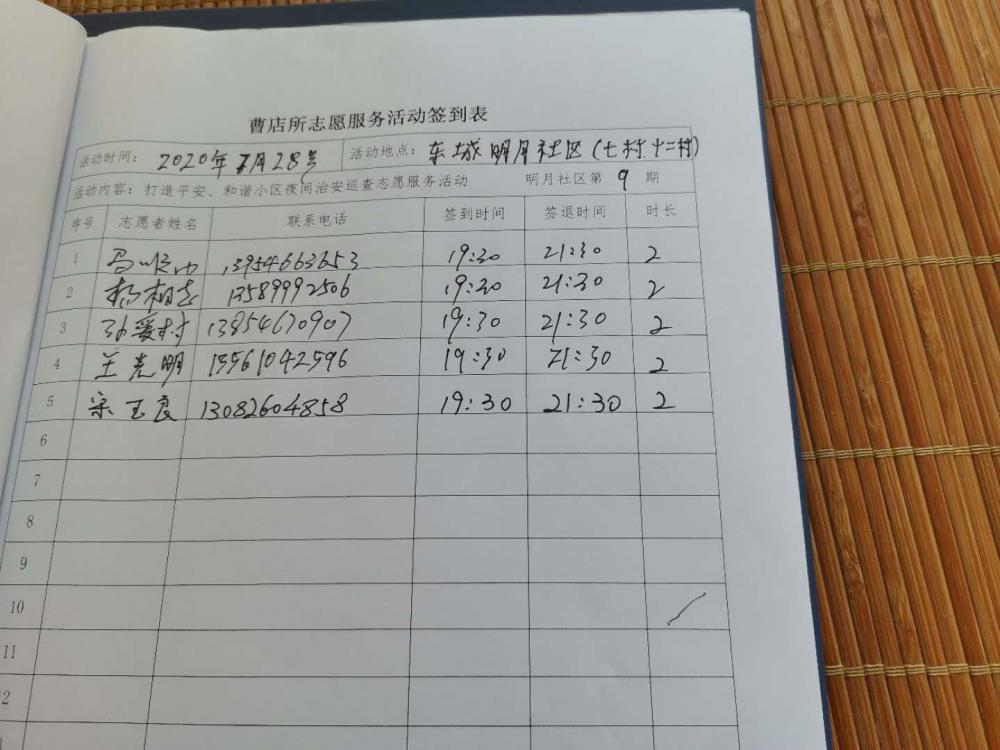 曹店所志愿服务活动签到表
活动时间: 2020年7月28号 活动地点: 东城明月社区(七村十二村)
活动内容: 打造平安、和谐小区夜间治安巡查志愿服务活动 明月社区第 9 期
序号 志愿者姓名 联系电话 签到时间 签退时间 时长
1 13954663653 19:30 21:30 2
2 杨相志 13589992506 19:30 21:30 2
3 孙爱村 13854670907 19:30 21:30 2
4 兰光明 13561042596 19:30 21:30 2
5 宋玉良 13082604858 19:30 21:30 2
6
7
8
9
10
11
2